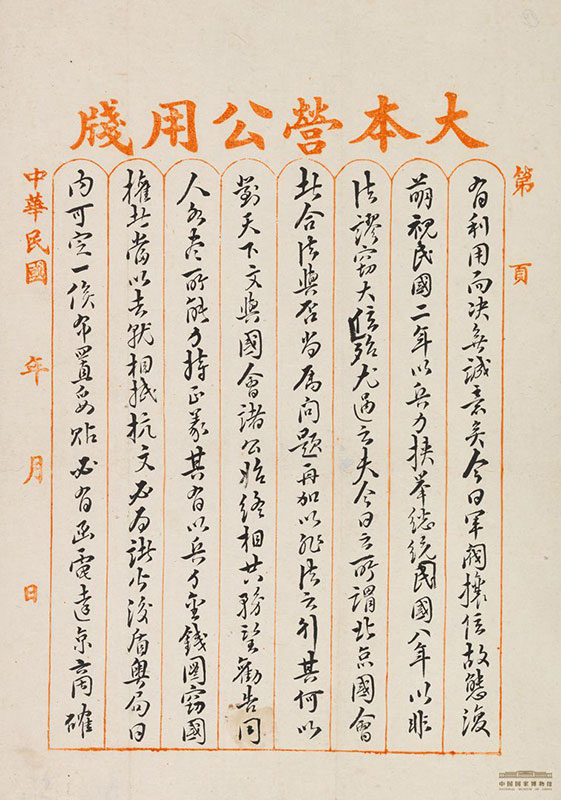 大本營公用牋
第 頁
有利用而决無誠意矣今日軍閥攘位故態復
萌視民國二年以兵力挾舉總統民國八年以非
法謬竊大位殆尤過之夫今日之所謂北京國會
其合法與否尚属問題再加以非法之行其何以
對天下文與國會諸公始終相共務望勸告同
人各盡所能力持正義其有以兵力金錢圖竊國
權者當以去就相抵抗文必為諸公後盾粤局日
内可定一俟布置妥貼必有函電達京商確
中華民國 年 月 日
中国国家博物馆
NATIONAL MUSEUM OF CHINA